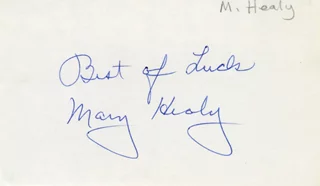 M. Healy
Best of Luck
Mary Healy